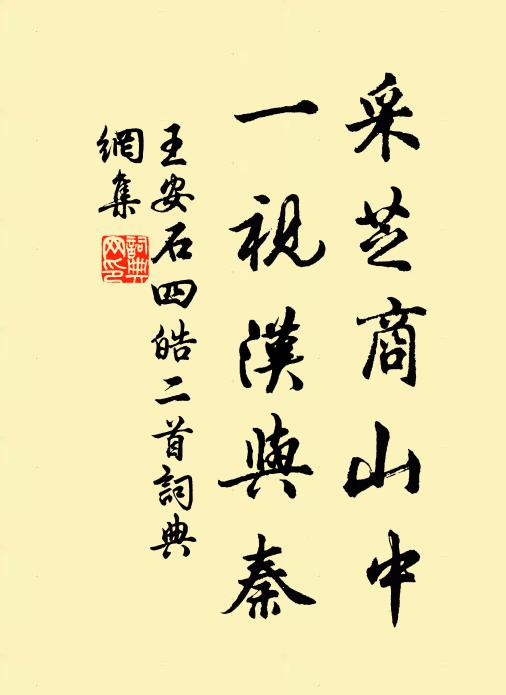 采芝商山中
一視漢與秦
王安石四皓二首詞典
網集
詞典
网印